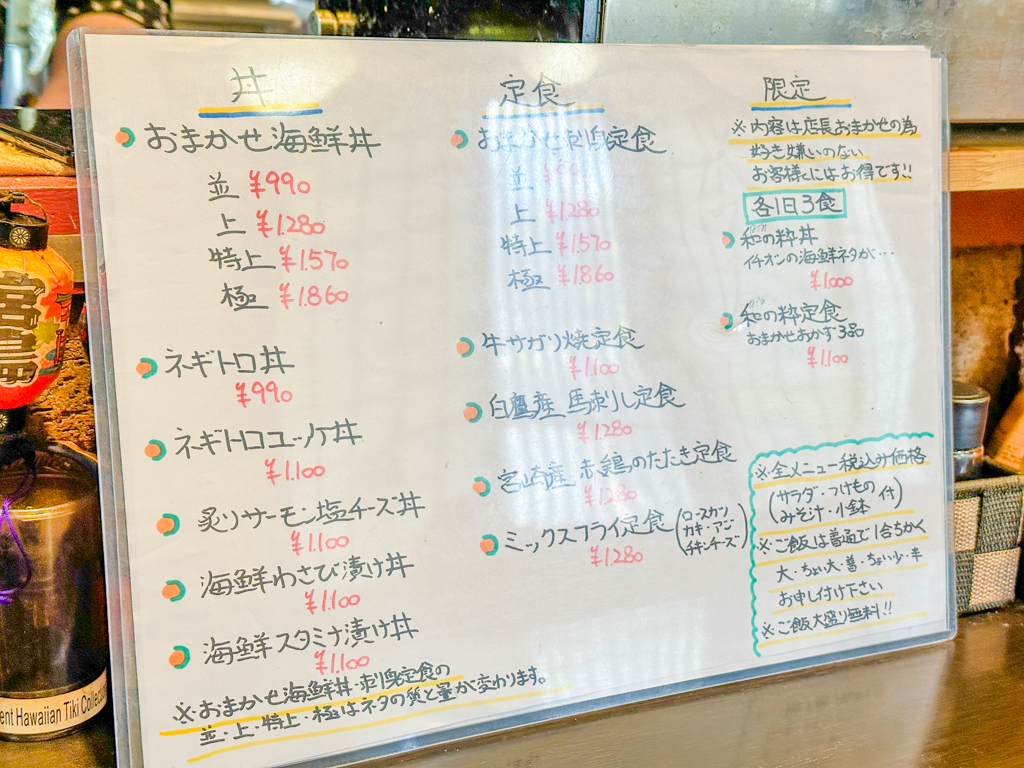 丼
おまかせ海鮮丼
並 ¥990
上 ¥1.280
特上 ¥1.570
極 ¥1.860
ネギトロ丼
¥990
ネギトロユッケ丼
¥1.100
炙りサーモン塩チーズ丼
¥1.100
海鮮わさび漬け丼
¥1.100
海鮮スタミナ漬け丼
¥1.100
※おまかせ海鮮丼・刺身定食の
並・上・特上・極はネタの質と量が変わります。
定食
おまかせ刺身定食
並 ¥990
上 ¥1.280
特上 ¥1.570
極 ¥1.860
牛サガリ焼定食
¥1.100
白鷹産 馬刺し定食
¥1.280
宮崎産 赤鶏のたたき定食
¥1.280
ミックスフライ定食 (ロースカツ
カキ・アジ
チキンチーズ)
¥1.280
限定
※内容は店長おまかせの為
好き嫌いのない
お客様にはお得です!!
各1日3食
和の粋丼
イチオシの海鮮ネタが…
¥1.000
和の粋定食
おまかせおかず3品
¥1.100
※全メニュー税込み価格
(サラダ・つけもの
みそ汁・小鉢 付)
※ご飯は普通で1合ちかく
大・ちょい大・普・ちょい少・半
お申し付け下さい
※ご飯大盛り無料!!
ent Hawaiian Tiki Collec